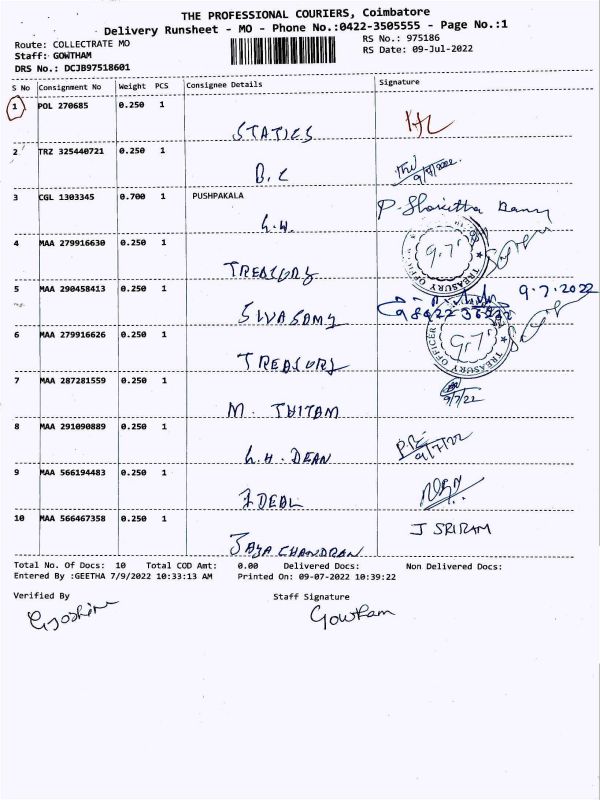 THE PROFESSIONAL COURIERS, Coimbatore
Delivery Runsheet - MO - Phone No.:0422-3505555 - Page No.:1
Route: COLLECTRATE MO
RS No.: 975186
Staff: GOWTHAM
RS Date: 09-Jul-2022
DRS No.: DCJB97518601
S No Consignment No Weight PCS Consignee Details Signature
1 POL 270685 0.250 1
STATICS
2 TRZ 325440721 0.250 1
B.C
9/7/2022
3 CGL 1303345 0.700 1 PUSHPAKALA
G.H.
4 MAA 279916630 0.250 1
TREASURY
9.7
TREASURY OFFICER
5 MAA 290458413 0.250 1
SIVASAMY
9.7.2022
6 MAA 279916626 0.250 1
TREASURY
9.7
TREASURY OFFICER
7 MAA 287281559 0.250 1
9/7/22
8 MAA 291090889 0.250 1
G.H. DEAN
9/7/22
9 MAA 566194483 0.250 1
IDEAL
10 MAA 566467358 0.250 1
JAYA CHANDRAN
J SRIRAM
Total No. Of Docs: 10 Total COD Amt: 0.00 Delivered Docs: Non Delivered Docs:
Entered By :GEETHA 7/9/2022 10:33:13 AM Printed On: 09-07-2022 10:39:22
Verified By Staff Signature
Gowtham